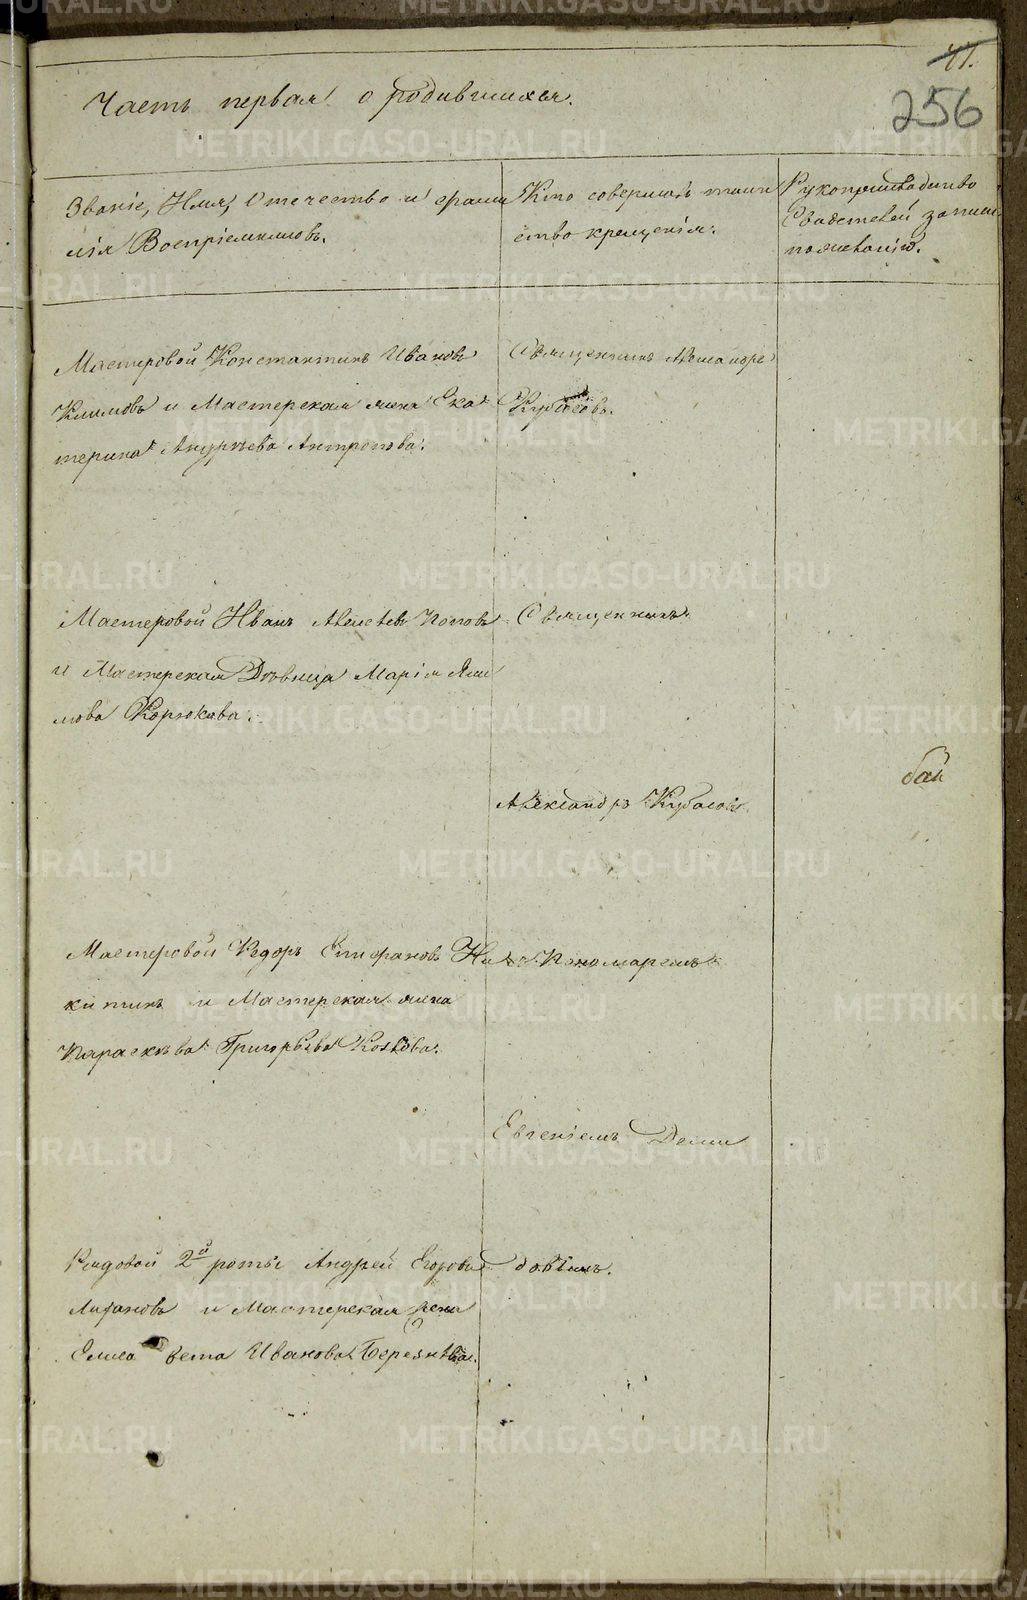 41.
256
Часть первая о родившихся.
Званіе, Имя, Отечество и фами
лія Воспріемниковъ.
Кто совершалъ таин
ство крещенія.
Рукоприкладство
Свидетелей записи
по желанію.
Мастеровой Константинъ Ивановъ
Климовъ и Мастерская жена Ека
терина Андреева Антропова.
Священникъ Александръ
Кубасовъ.
Мастеровой Иванъ Алексеевъ Поповъ
и Мастерская Дѣвица Марія
Корюкова.
Священникъ
Александръ Кубасовъ
бай
Мастеровой Федоръ Епифановъ Ни
китинъ и Мастерская жена
Параскева Григорьева Козлова.
Пономаремъ
Евгеніемъ Деми
довымъ.
Рядовой 2й роты Андрей Егоровъ
Лифановъ и Мастерская жена
Елисавета Иванова Березнева.
METRIKI.GASO-URAL.RU